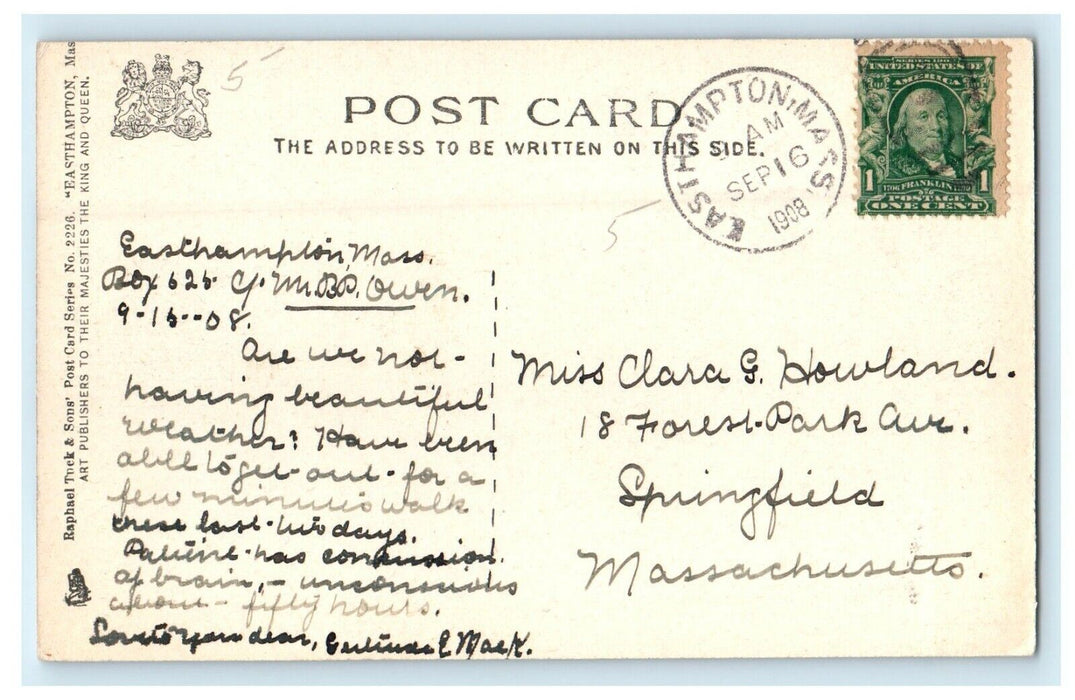 Raphael Tuck & Sons' Post Card Series No. 2226. "EASTHAMPTON, Mas
ART PUBLISHERS TO THEIR MAJESTIES THE KING AND QUEEN.
5
POST CARD
THE ADDRESS TO BE WRITTEN ON THIS SIDE.
EASTHAMPTON, MASS
AM
SEP 16
1908
SERIES 1902
UNITED STATES OF
AMERICA
1706 FRANKLIN 1790
POSTAGE
ONE CENT
1 1
5
Easthampton, Mass.
Box 625 c/o Mr. B.P. Owen.
9-15--08.
Are we not
having beautiful
weather? Have been
able to get out for a
few minutes walk
these last two days.
Patient has concussion
of brain, - unconscious
about fifty hours.
Love to you dear, Gertrude E. Mack.
Miss Clara G. Howland.
18 Forest Park Ave.
Springfield
Massachusetts.